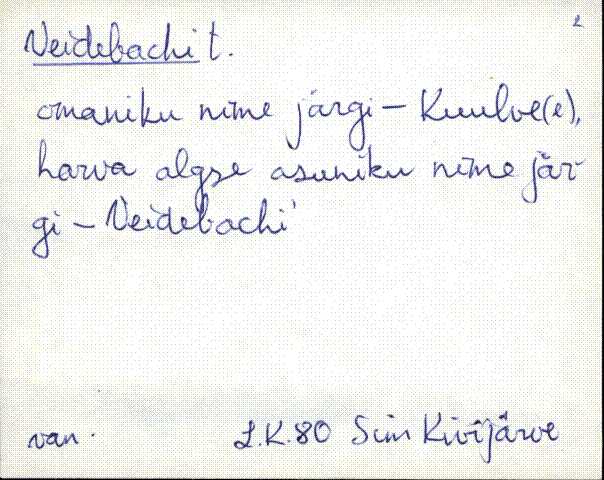 2
Veidebachi t.
omaniku nime järgi – Kuulve(e),
harva algse asuniku nime jär
gi – Veidebachi'
van. L.K.80 Sim Kivijärve